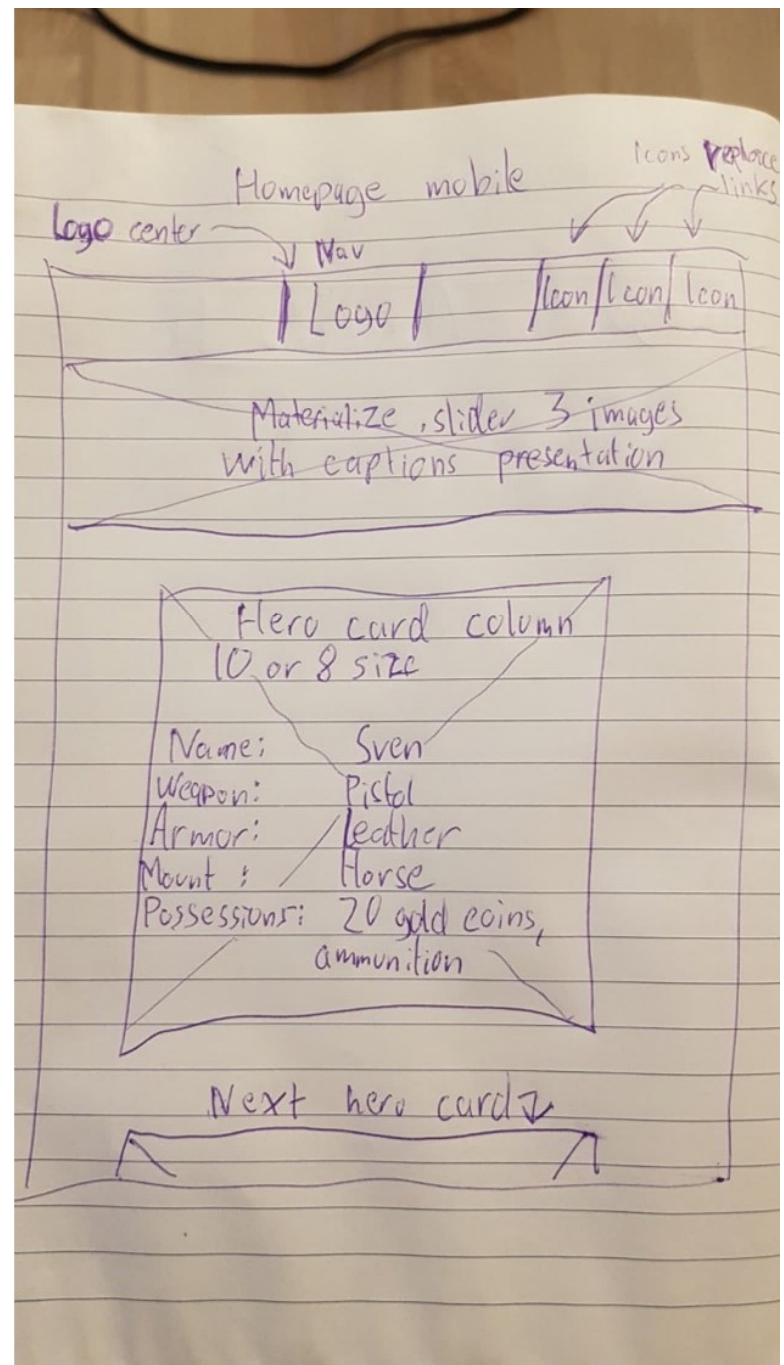 Homepage mobile
Icons replace
links
Logo center
Nav
Logo
Icon Icon Icon
Materialize slider 3 images
with captions presentation
Hero card column
10 or 8 size
Name: Sven
Weapon: Pistol
Armor: Leather
Mount : Horse
Possessions: 20 gold coins,
ammunition
Next hero card